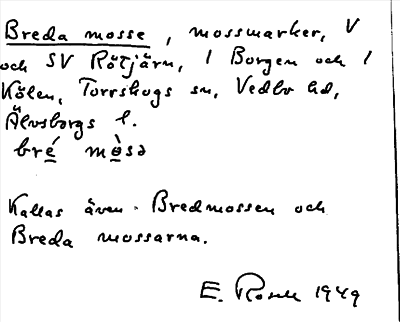 Breda mosse, mossmarker, V
och SV Rötjärn, I Borgen och I
Kölen, Torrskogs sn, Vedbo hd,
Älvsborgs l.
bré mòsə
Kallas även Bredmossen och
Breda mossarna.
E. 1949